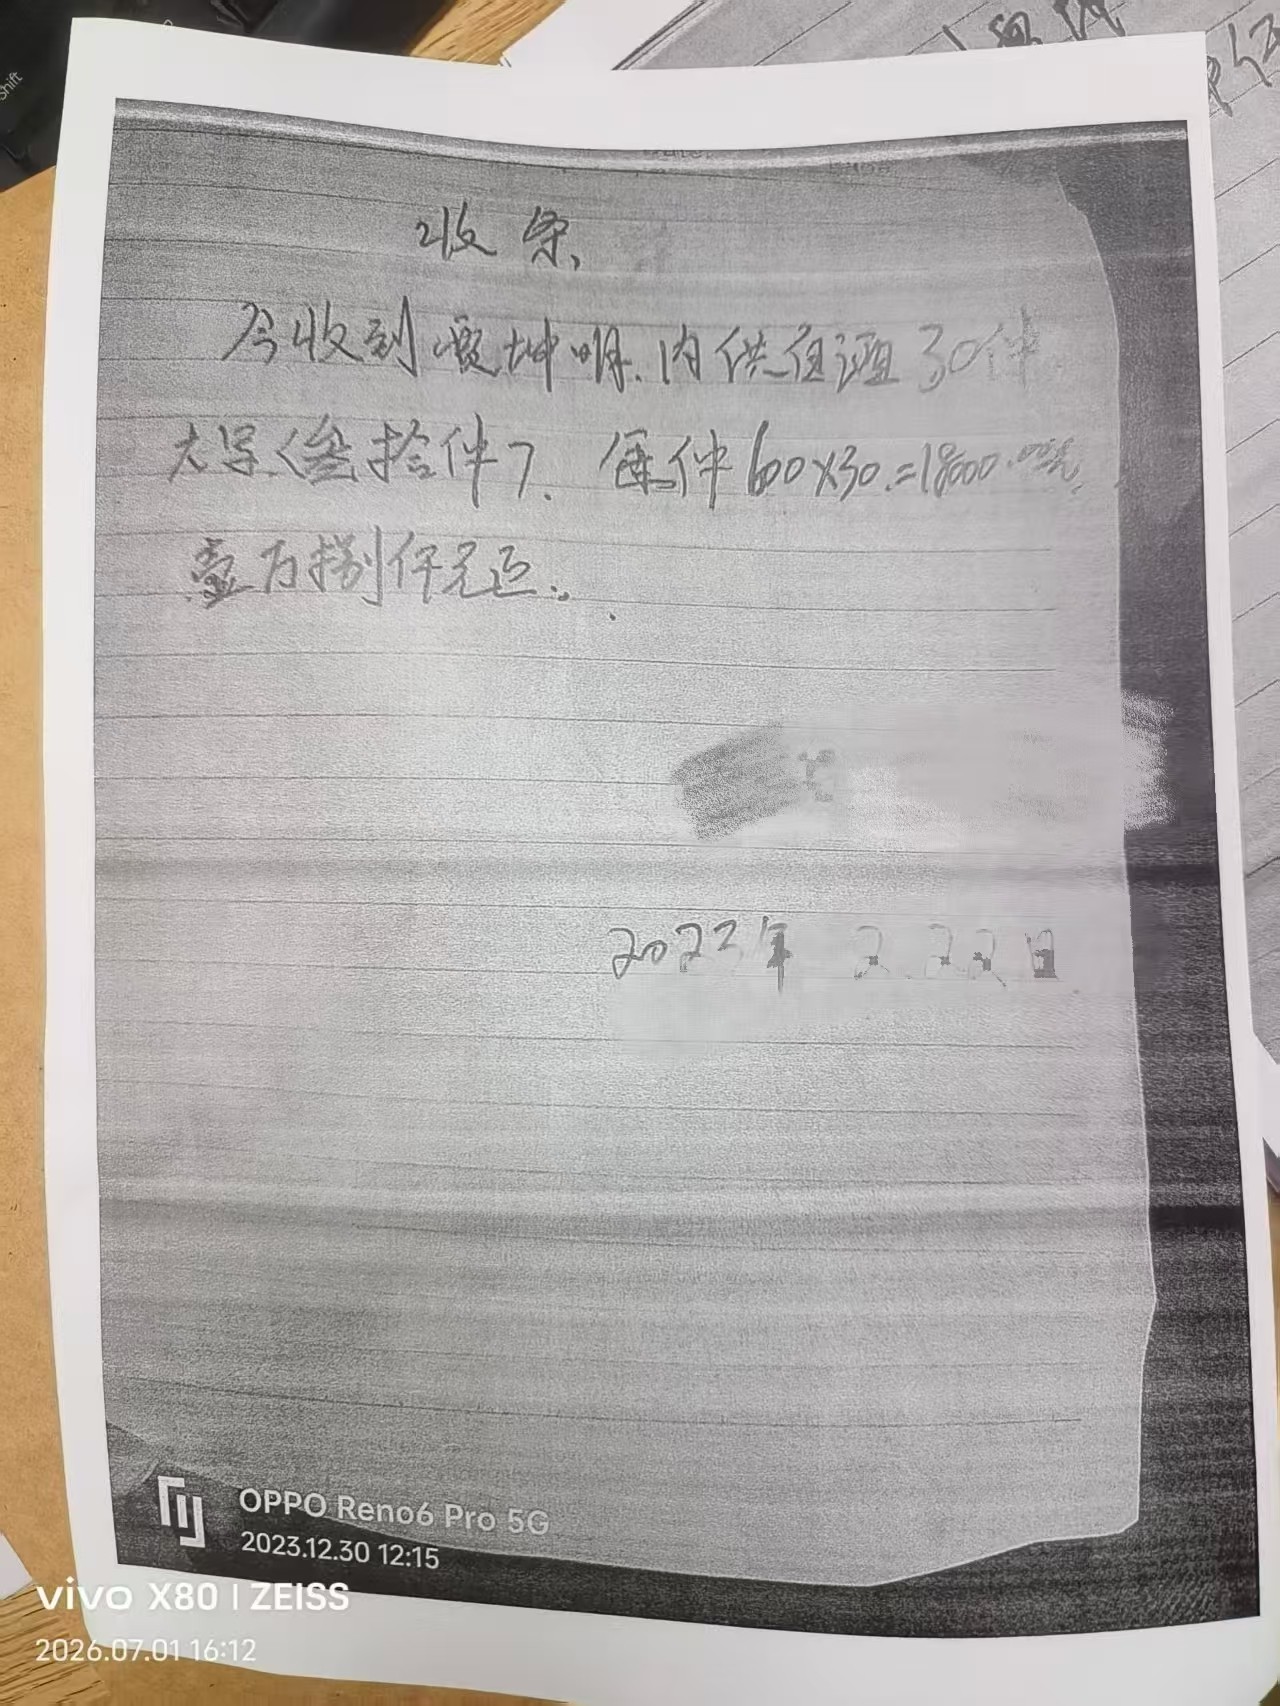 Shift
收条、
今收到 坤明.内供 酒 30件
大写〈叁拾件〉. 每件600×30.=18000.00元.
壹万捌仟元正.
2023年 2 22日
OPPO Reno6 Pro 5G
2023.12.30 12:15
vivo X80 | ZEISS
2026.07.01 16:12